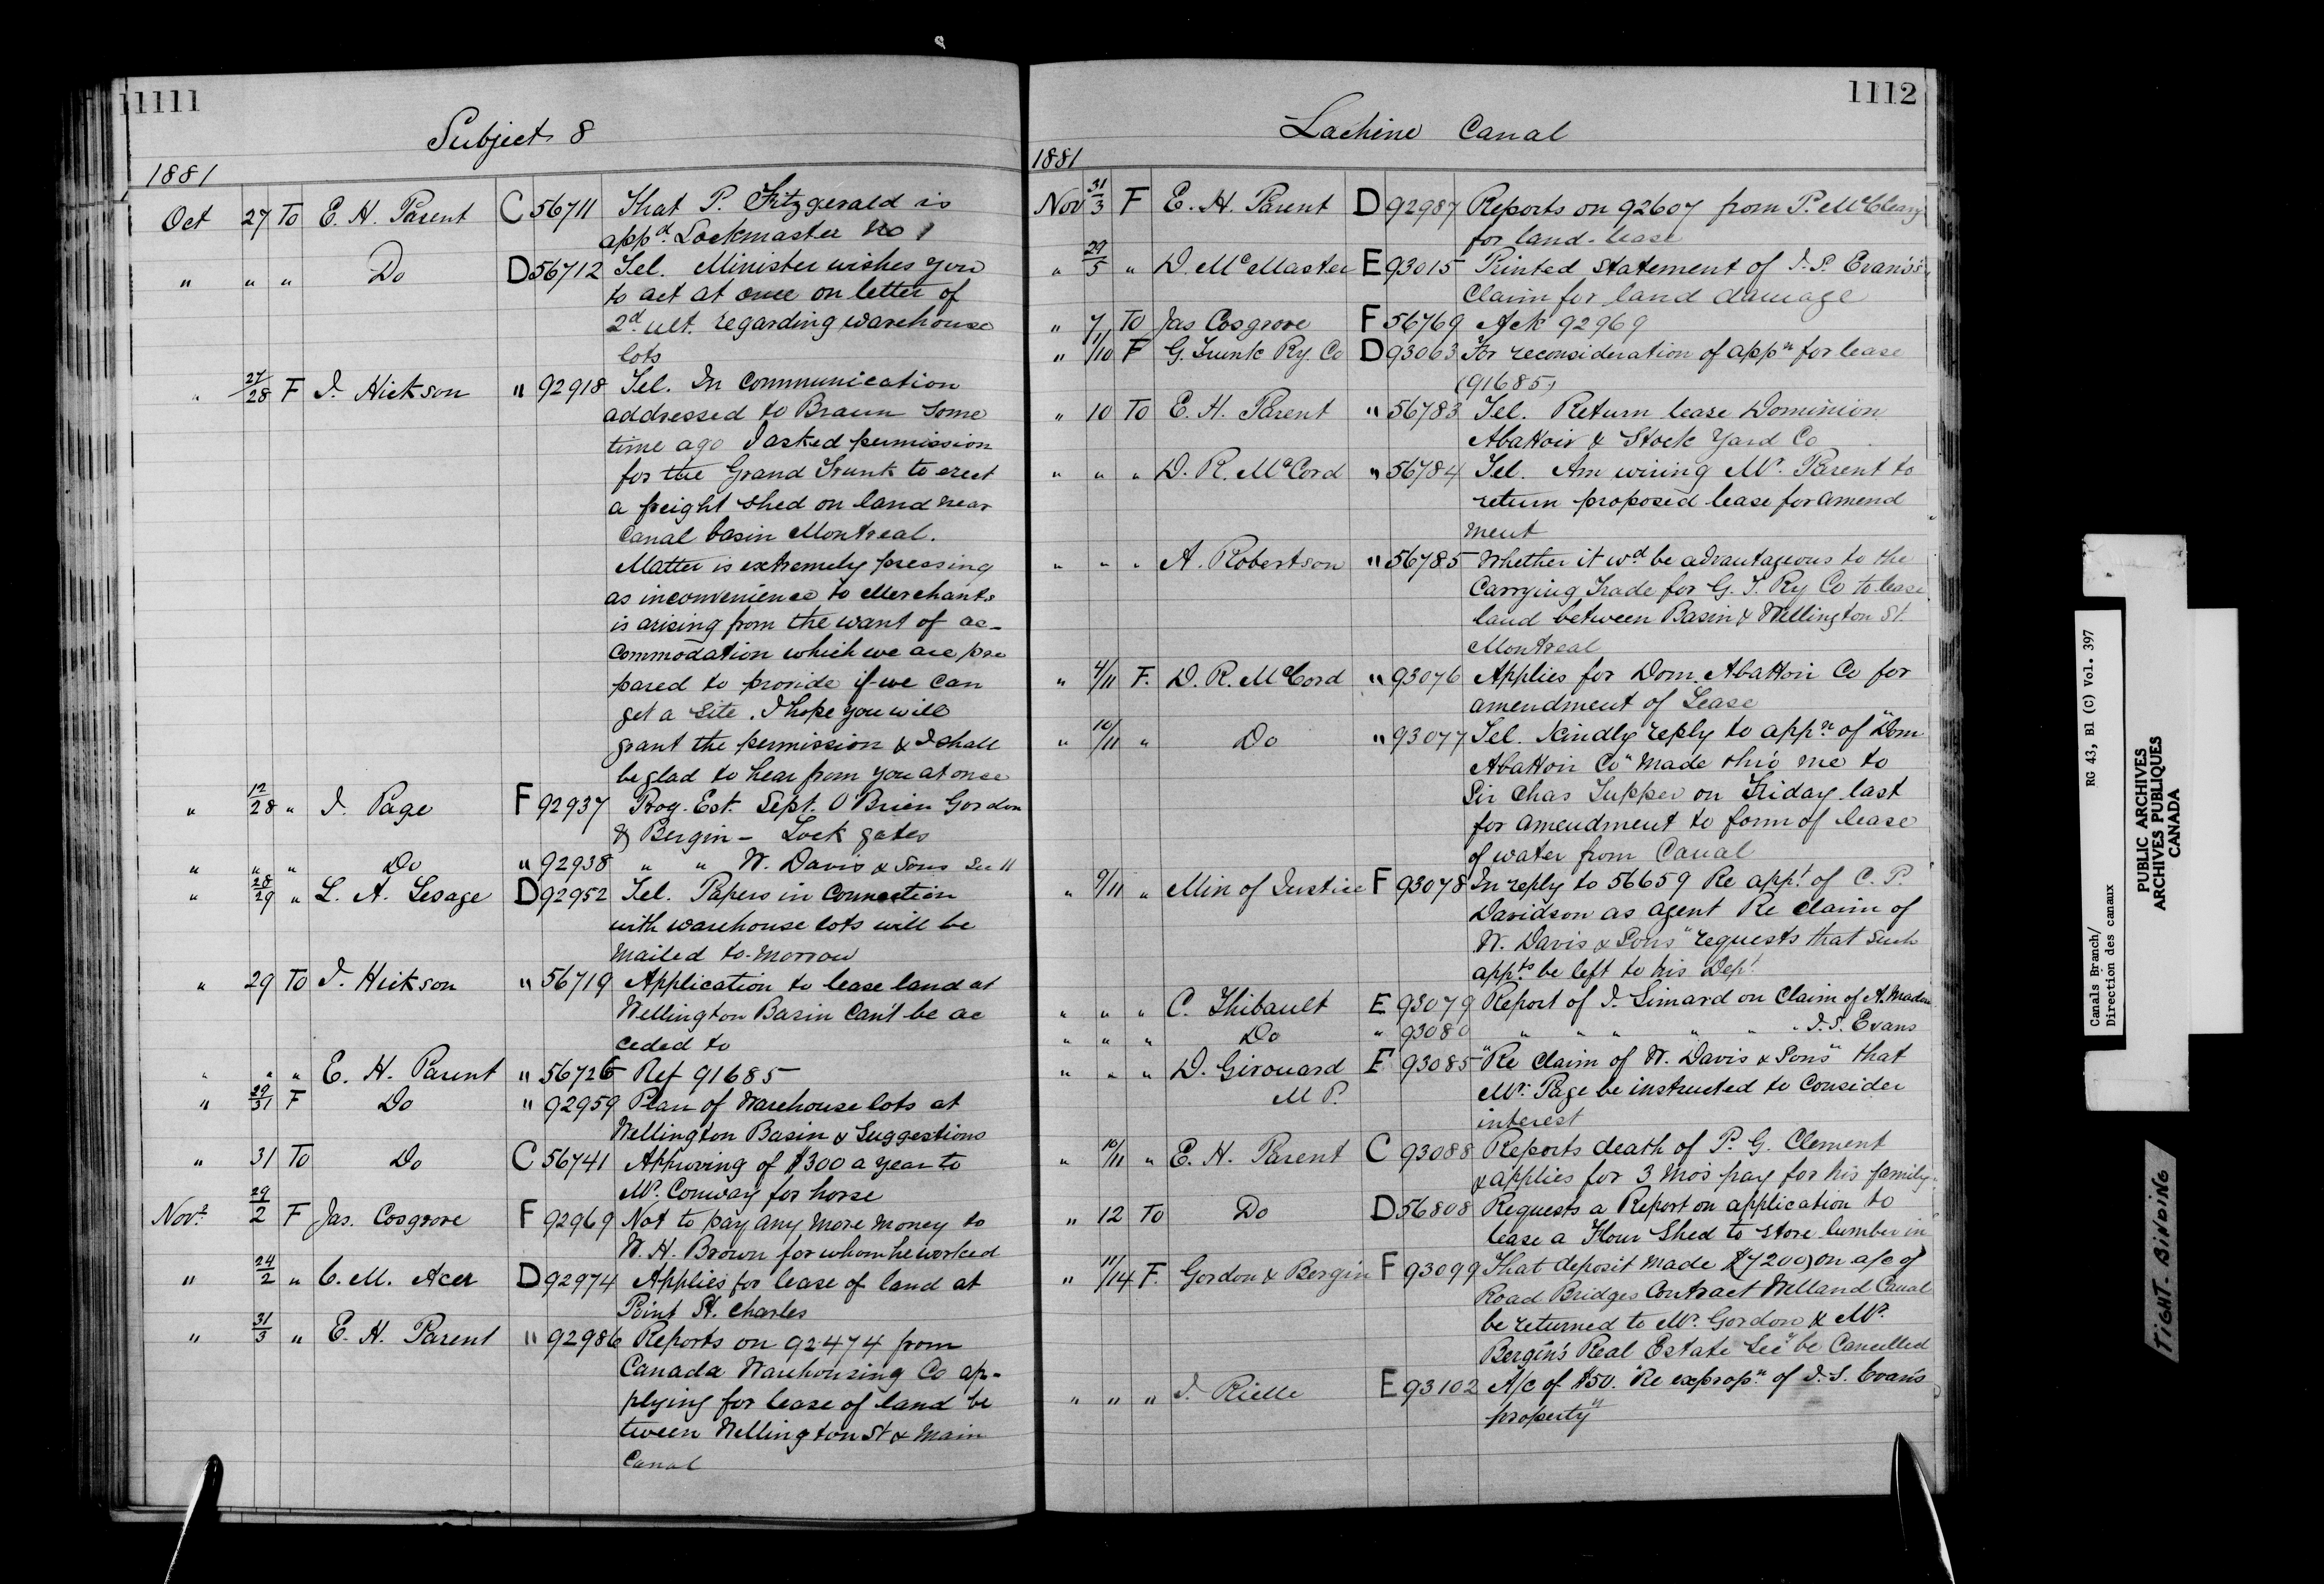 1111
Subject 8
1881
Oct 27 To E. H. Parent C 56711 That P. Fitzgerald is
appd. Lockmaster No 1
" " " Do D 56712 Tel. Minister wishes you
to act at once on letter of
2d ult. regarding warehouse
lots
" 27/28 F J. Hickson " 92918 Tel. In communication
addressed to Braun some
time ago I asked permission
for the Grand Trunk to erect
a freight shed on land near
Canal basin Montreal.
Matter is extremely pressing
as inconvenience to Merchants
is arising from the want of ac-
commodation which we are pre
pared to provide if we can
get a site. I hope you will
grant the permission & I shall
be glad to hear from you at once
" 12/28 " J. Page F 92937 Prog. Est. Sept. O'Brien Gordon
& Bergin - Lock gates
" " " Do " 92938 " " W. Davis & Sons Sec 11
" 28/29 " L. A. Lesage D 92952 Tel. Papers in Connection
with warehouse lots will be
mailed to-morrow
" 29 To J. Hickson " 56719 Application to lease land at
Wellington Basin Can't be ac
ceded to
" " " E. H. Parent " 56726 Ref 91685
" 29/31 F Do " 92959 Plan of Warehouse lots at
Wellington Basin & Suggestions
" 31 To Do C 56741 Approving of $300 a year to
Mr. Conway for horse
Novr. 29/2 F Jas. Cosgrove F 92969 Not to pay any more money to
W. H. Brown for whom he worked
" 24/2 " C. M. Acer D 92974 Applies for lease of land at
Point St. Charles
" 31/3 " E. H. Parent " 92986 Reports on 92474 from
Canada Warehousing Co ap-
plying for lease of land be
tween Wellington St & Main
Canal
1112
Lachine Canal
1881
Nov 31/3 F E. H. Parent D 92987 Reports on 92607 from P. McCleary
for land-lease
" 29/5 " D. McMaster E 93015 Printed Statement of J. S. Evans's
Claim for land damage
" 7 To Jas Cosgrove F 56769 Ack 92969
" 1/10 F G. Trunk Ry. Co D 93063 For reconsideration of appn for lease
(91685)
" 10 To E. H. Parent " 56783 Tel. Return lease Dominion
Abattoir & Stock Yard Co
" " " D. R. McCord " 56784 Tel. Am wiring Mr. Parent to
return proposed lease for amend
ment
" " " A. Robertson " 56785 Whether it wd be advantageous to the
Carrying Trade for G. T. Ry Co to lease
land between Basin & Wellington St.
Montreal
" 4/11 F. D. R. McCord " 93076 Applies for Dom. Abattoir Co for
amendment of Lease
" 10/11 " Do " 93077 Tel. Kindly reply to appn of "Dom
Abattoir Co" made thro me to
Sir Chas Tupper on Friday last
for amendment to form of lease
of water from Canal
" 9/11 " Min of Justice F 93078 In reply to 56659 Re appt. of C. P.
Davidson as agent Re Claim of
W. Davis & Sons" requests that such
appts. be left to his Dept.
" " " C. Thibault E 93079 Report of J. Simard on Claim of A. Madon
" " " Do " 93080 " " " " " " J. S. Evans
" " " D. Girouard F 93085 "Re Claim of W. Davis & Sons" that
M P. Mr. Page be instructed to Consider
interest
" 10/11 " E. H. Parent C 93088 Reports death of P. G. Clement
& applies for 3 Mos pay for his family
" 12 To Do D 56808 Requests a Report on application to
lease a Flour Shed to store lumber in
" 11/14 F. Gordon & Bergin F 93099 That deposit made ($7200) on a/c of
Road Bridges Contract Welland Canal
be returned to Mr. Gordon & Mr.
Bergin's Real Estate Secy be Cancelled
" " " J. Rielle E 93102 A/c of $50. "Re expropn. of J. S. Evans
property"
Canals Branch/
Direction des canaux
RG 43, B1 (C) Vol. 397
PUBLIC ARCHIVES
ARCHIVES PUBLIQUES
CANADA
TIGHT BINDING